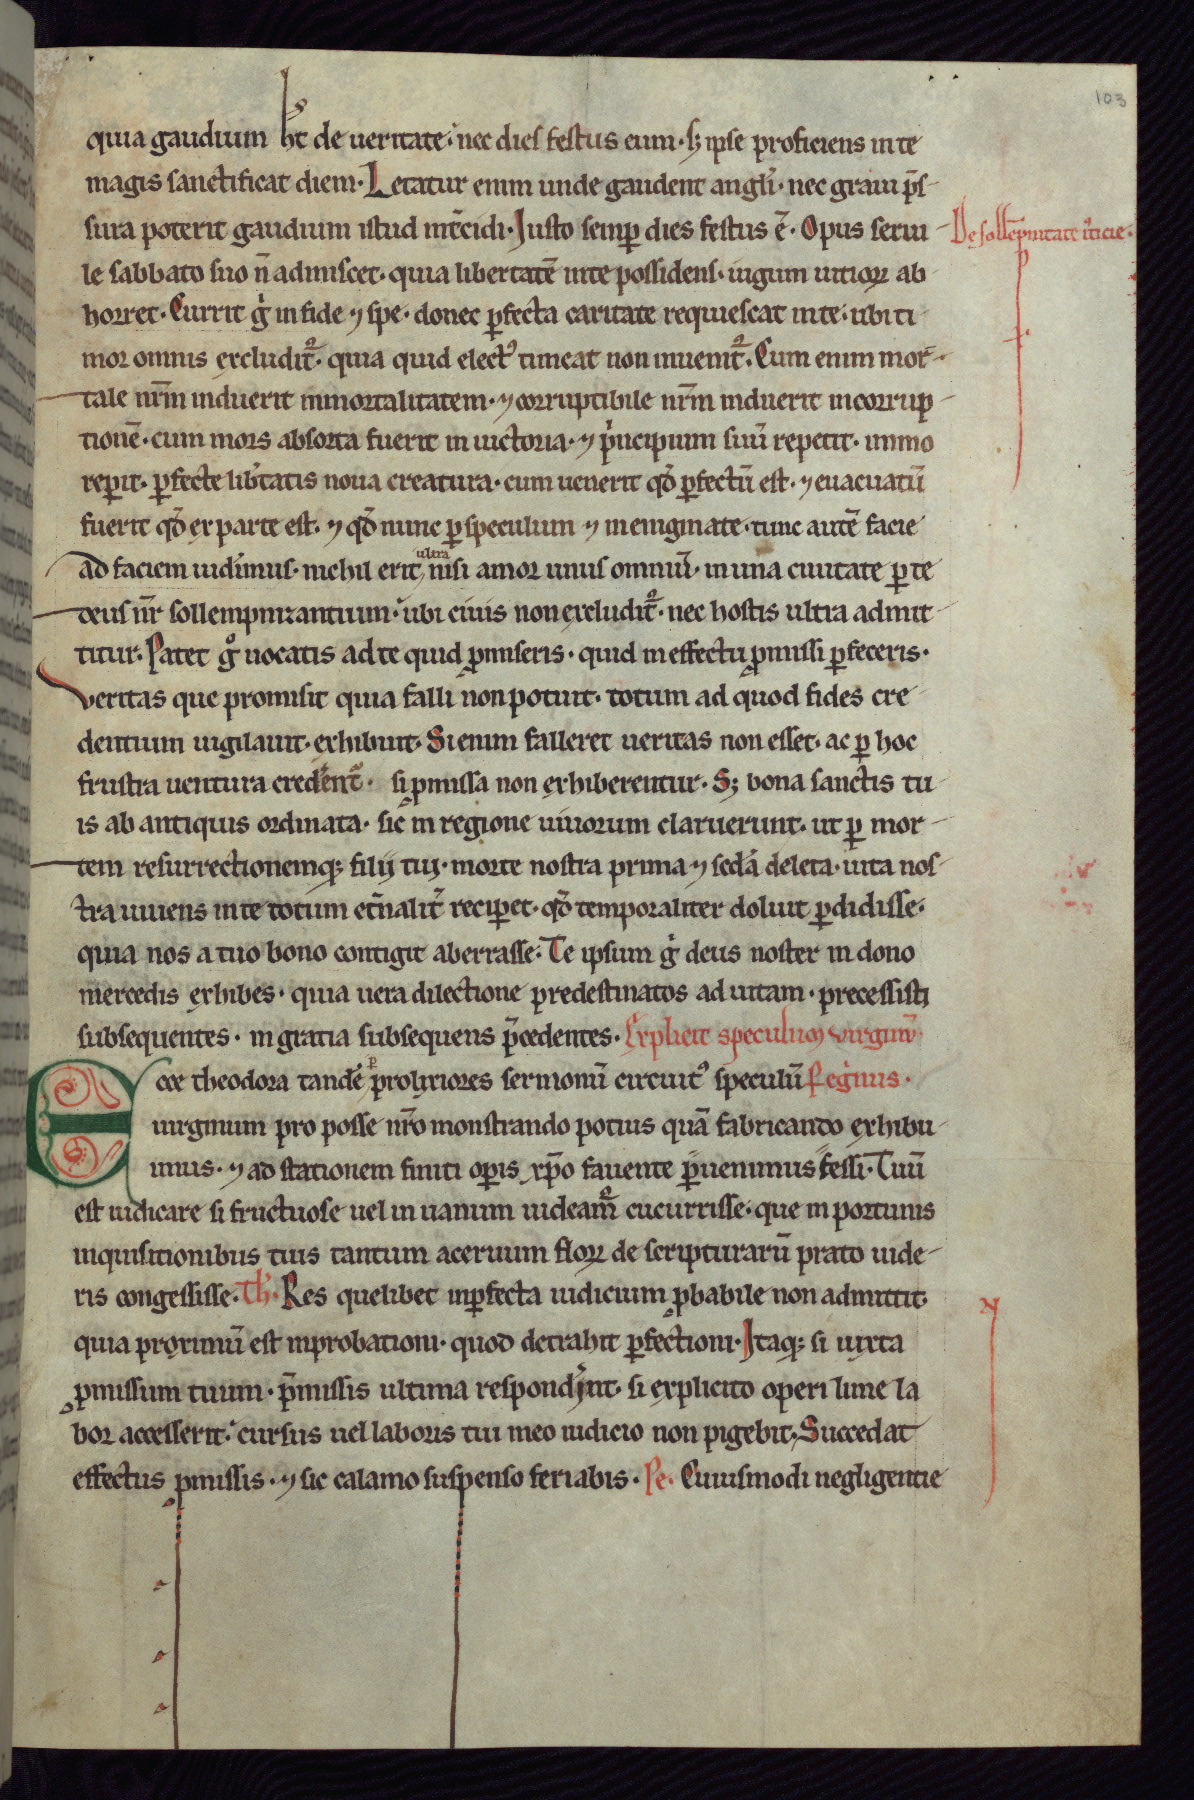 103
quia gaudium h̄t de ueritate. nec dies festus eum. sꝫ ipse proficiens in te
magis sanctificat diem. Letatur enim unde gaudent angl̓i. nec graui p̄s
sura poterit gaudium istud int̄cidi. Iusto semꝑ dies festus ē. Opus serui
De sollēpnitate
le sabbato suo n̄ admiscet. quia libertatē in te possidens. iugum uitioꝝ ab
horret. Currit gͥ in fide ⁊ spe. donec ꝑfecta caritate requiescat in te. ubi ti
mor omnis excludit᷑. quia quid electꝰ timeat non inuenit᷑. Cum enim mor
tale nr̄m induerit inmortalitatem. ⁊ corruptibile nr̄m induerit incorrup
tionē. cum mors absorta fuerit in uictoria. ⁊ pͥncipium suū repetit. immo
reꝑit. ꝑfecte lib̓tatis noua creatura. cum uenerit qd̓ ꝑfectū est. ⁊ euacuatū
fuerit qd̓ ex parte est. ⁊ qd̓ nunc ꝑ speculum ⁊ in enigmate. tunc autē facie
ad faciem uid̓imus. nichil erit ultra nisi amor unus omniū. in una ciuitate ꝑ te
deus nr̄ sollempnizantium. ubi ciuis non excludit᷑. nec hostis ultra admit
titur. Patet gͦ uocatis ad te quid ꝓmiseris. quid in effectu ꝓmissi ꝑfeceris.
Veritas que promisit quia falli non potuit. totum ad quod fides cre
dentium uigilauit. exhibuit. Si enim falleret ueritas non esset. ac ꝑ hoc
frustra uentura cred̓ent᷑. si ꝓmissa non exhiberentur. Sꝫ bona sanctis tu
is ab antiquis ordinata. sic̄ in regione uiuorum claruerunt. ut ꝑ mor
tem resurrectionemqꝫ filij tui. morte nostra prima ⁊ sed̄a deleta. uita nos
tra uiuens in te totum et̄nalit̓ recipet. qd̓ temporaliter doluit ꝑdidisse.
quia nos a tuo bono contigit aberrasse. Te ipsum gͥ deus noster in dono
mercedis exhibes. quia uera dilectione predestinatos ad uitam. precessisti
subsequentes. in gratia subsequens p̄cedentes. Explicit speculum virginū
Ecce theodora tandē prolixiores sermonū circuitꝰ speculū Peg̓inus.
uirginum pro posse nr̄o monstrando potius quā fabricando exhibu
imus. ⁊ ad stationem finiti oꝑis xp̄o fauente ꝑuenimus fessi. Tuū
est iudicare si fructuose uel in uanum uideam᷑ cucurrisse. que inportunis
inquisitionibus tuis tantum aceruum floꝝ de scripturarū prato uide
ris congessisse. Th̓. Res quelibet inꝑfecta iudicium ꝓbabile non admittit
quia proximū est inprobationi. quod detrahit ꝑfectioni. Itaqꝫ si iuxta
ꝓmissum tuum. p̄missis ultima respond̓int. si explicito operi lime la
bor accesserit. cursus uel laboris tui meo iudicio non pigebit. Succedat
effectus ꝓmissis. ⁊ sic calamo suspenso feriabis. Pe. Cuiusmodi negligentie